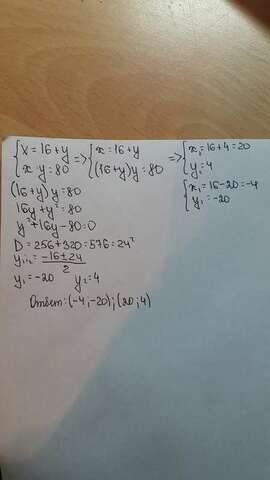 {x = 16+y => {x = 16+y => {x₂ = 16+4 = 20
{x·y = 80 {(16+y)y = 80 {y₂ = 4
{x₁ = 16-20 = -4
{y₁ = -20
(16+y)y = 80
16y + y² = 80
y² + 16y - 80 = 0
D = 256 + 320 = 576 = 24²
y₁,₂ = (-16 ± 24)/2
y₁ = -20 y₂ = 4
Ответ: (-4, -20); (20; 4)